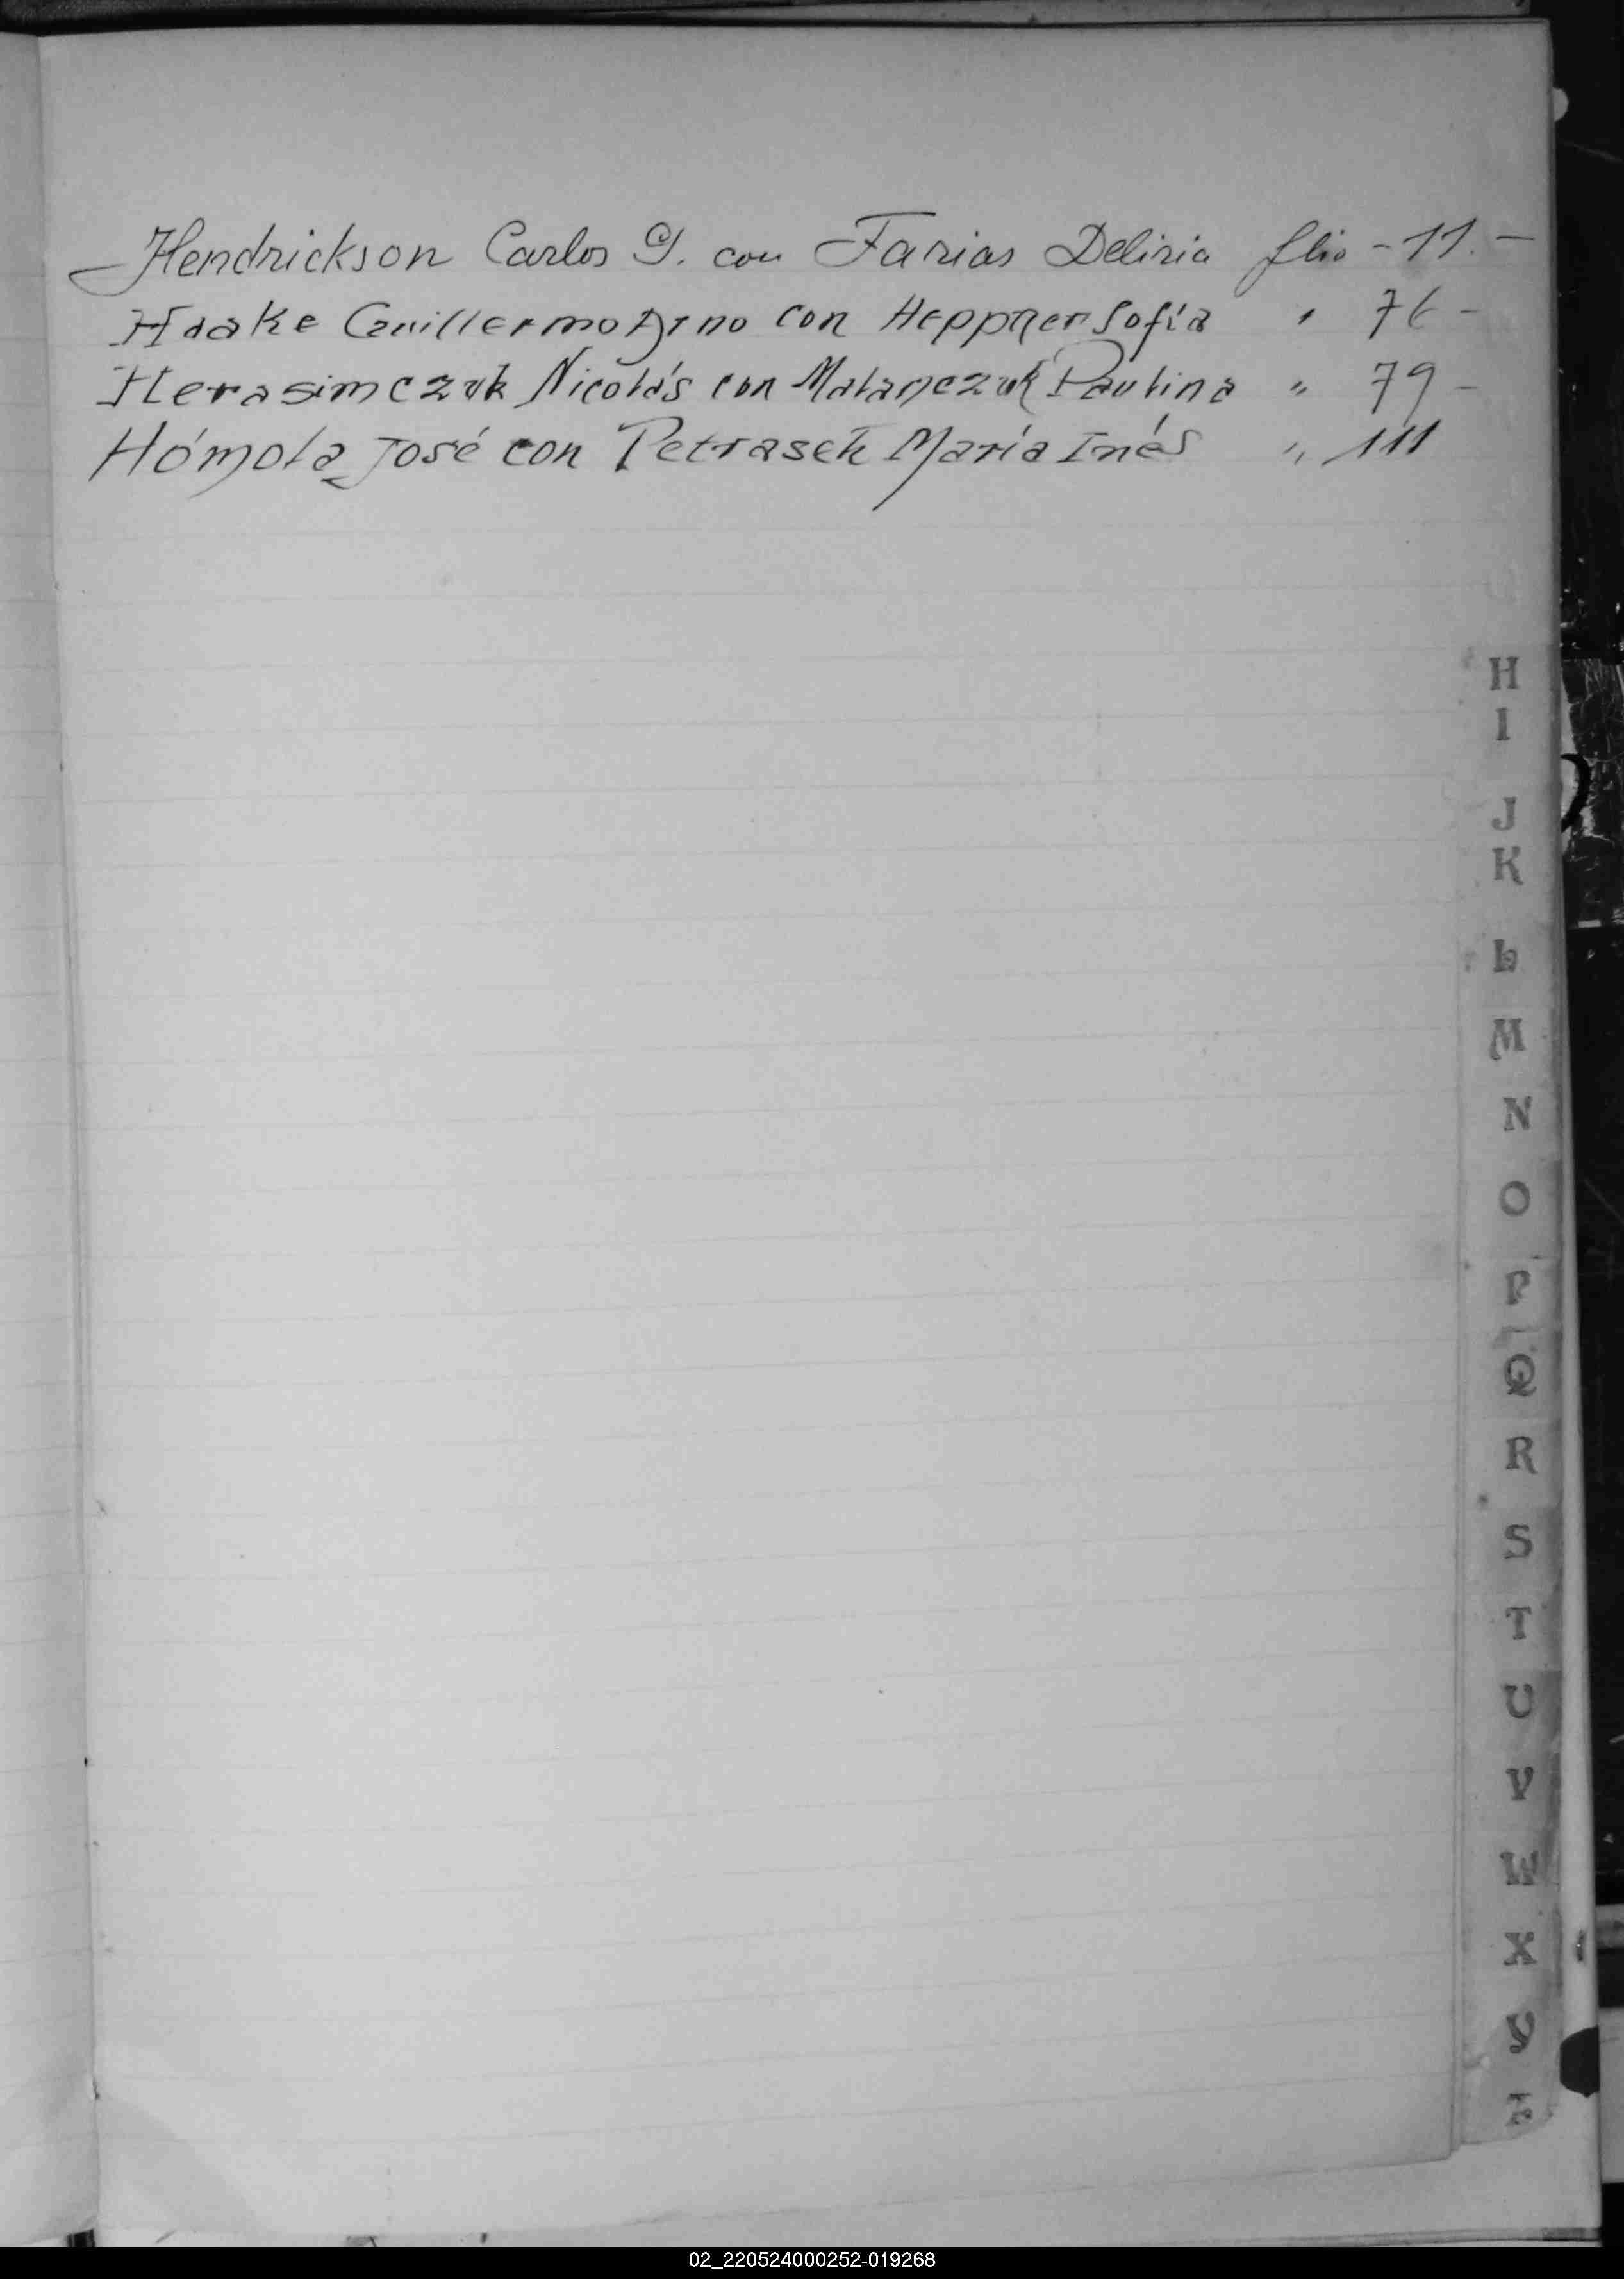 Hendrickson Carlos G. con Farias Deliria flio - 11. -
Haake Guillermo Arno con Heppner Sofía " 76 -
Herasimczuk Nicolás con Malanczuk Paulina " 79 -
Hómola José con Petrasek María Inés " 111
H
I
J
K
L
M
N
O
P
Q
R
S
T
U
V
W
X
Y
Z
02_220524000252-019268